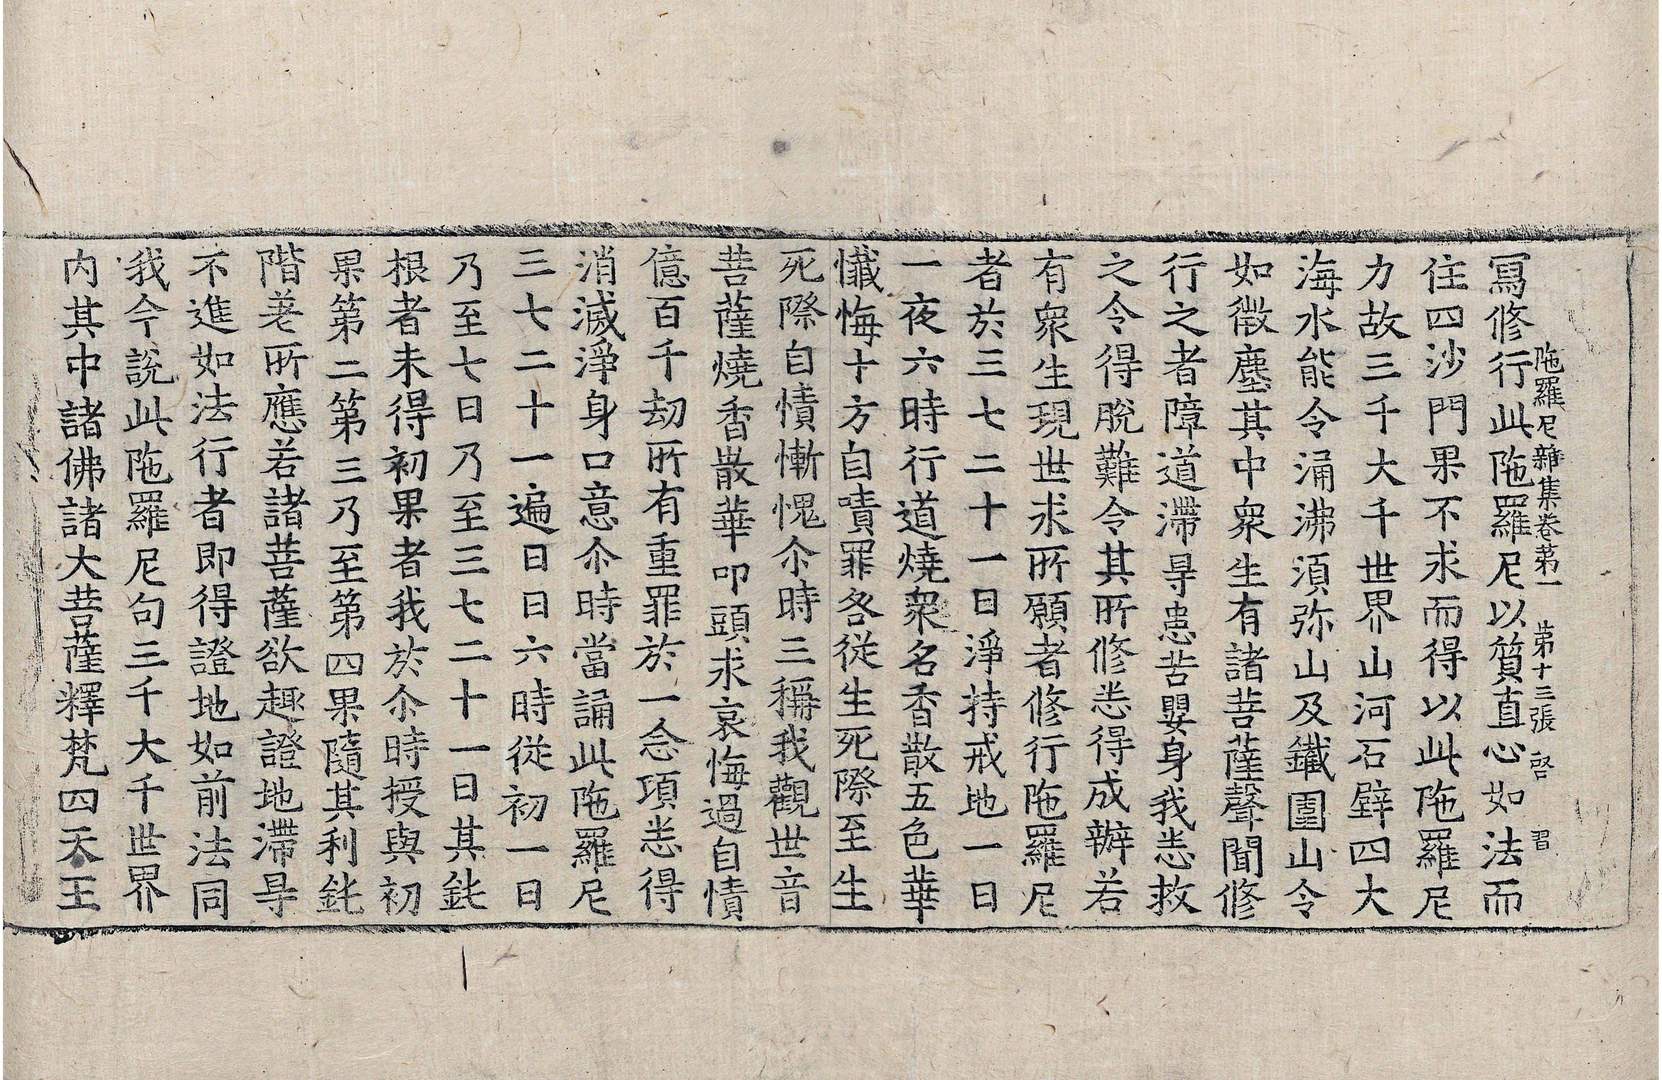 寫修行此陁羅尼以質直心如法而
陁羅尼雜集卷苐一 苐十三張 啓 習
住四沙門果不求而得以此陁羅尼
力故三千大千世界山河石壁四大
海水能令涌沸湏弥山及鐵圍山令
如微塵其中衆生有諸菩薩聲聞修
行之者障道滯㝵患苦嬰身我悉救
之令得脫難令其所修悉得成辦若
有衆生現世求所願者修行陁羅尼
者於三七二十一日淨持戒地一日
一夜六時行道燒衆名香散五色華
懺悔十方自嘖罪咎從生死際至生
死際自憒慚愧尒時三稱我觀世音
菩薩燒香散華叩頭求哀悔過自憒
億百千劫所有重罪於一念項悉得
消滅淨身口意尒時當誦此陁羅尼
三七二十一遍日日六時從初一日
乃至七日乃至三七二十一日其鈋
根者未得初果者我於尒時授與初
果第二第三乃至第四果隨其利鈋
階差所應若諸菩薩欲趣證地滯㝵
不進如法行者即得證地如前法同
我今說此陁羅尼句三千大千世界
内其中諸佛諸大菩薩釋梵四天王